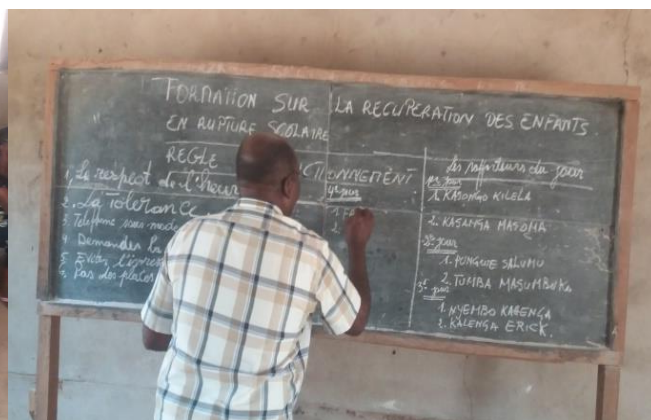 FORMATION SUR LA RECUPERATION DES ENFANTS
EN RUPTURE SCOLAIRE
REGLE CTIONNEMENT
1, Le respect de l'heur
2. La tolerance
3. Telephone sous mode
4 Demander la
5 Eviter
6. Pas
4e jour
1.
2
Les rapporteurs du jour
1er jour
1. KASONGO KILELA
2. KASANGA MASOMA
2e jour
1. PUNGWE SALUMU
2. TUMBA MASUMBUKO
3e jour
1. NYEMBO KABENGA
2. KALENGA ERICK.